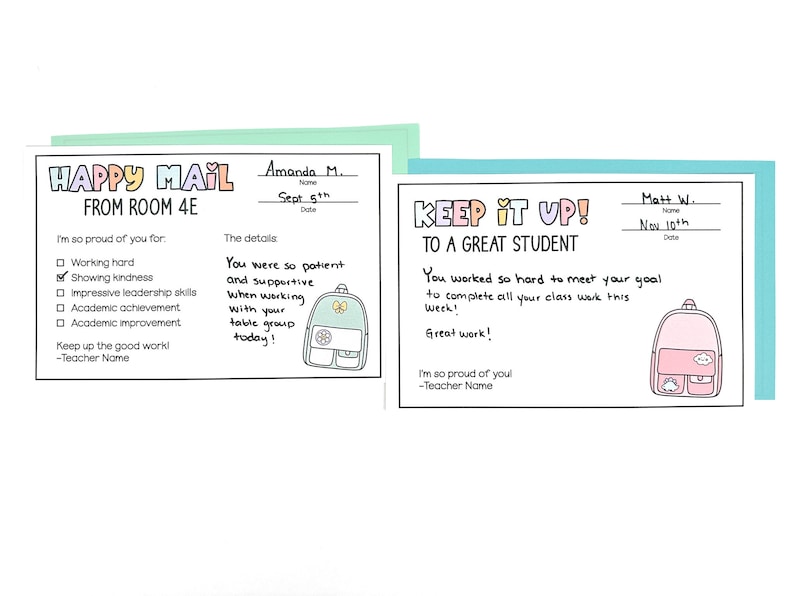 HAPPY MAiL
FROM ROOM 4E
Amanda M.
Name
Sept 5th
Date
I'm so proud of you for:
Working hard
Showing kindness
Impressive leadership skills
Academic achievement
Academic improvement
Keep up the good work!
-Teacher Name
The details:
You were so patient
and supportive
when working
with your
table group
today!
KEEP iT UP!
TO A GREAT STUDENT
Matt W.
Name
Nov 10th
Date
You worked so hard to meet your goal
to complete all your class work this
week!
Great work!
I'm so proud of you!
-Teacher Name